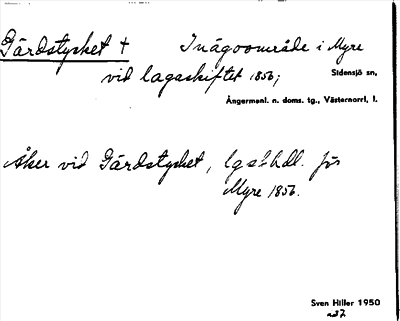 Gärdstycket † Inägoområde i Myre
vid lagaskiftet 1856;
Sidensjö sn,
Ångermanl. n. doms. tg., Västernorrl. l.
Åker vid Gärdstycket, lgs.hdl. för
Myre 1856.
Sven Hiller 1950